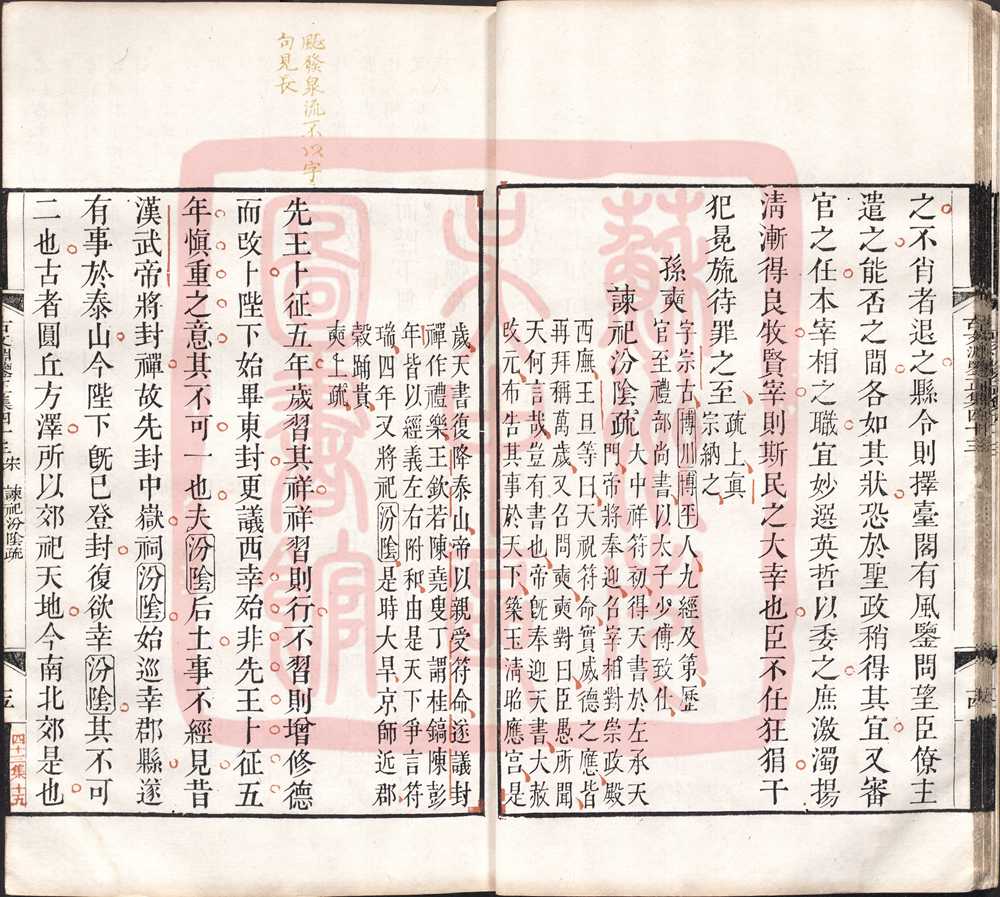 之不肖者退之縣令則擇臺閣有風鑒問望臣僚主
遣之能否之間各如其狀恐於聖政稍得其宜又審
官之任本宰相之職宜妙選英哲以委之庶激濁揚
清漸得良牧賢宰則斯民之大幸也臣不任狂狷干
犯冕旒待罪之至疏上真
宗納之
孫奭字宗古博川博平人九經及第歷
官至禮部尚書以太子少傅致仕
諫祀汾陰疏大中祥符初得天書於左承天
門帝將奉迎召宰相對崇政殿
西廡王旦等曰天祝符命實盛德之應皆
再拜稱萬歲又召問奭奭對曰臣愚所聞
天何言哉豈有書也帝旣奉迎天書大赦
改元布告其事於天下築玉清昭應宮是
歲天書復降泰山帝以親受符命遂議封
禪作禮樂王欽若陳堯叟丁謂桂鎬陳彭
年皆以經義左右附和由是天下爭言符
瑞四年又將祀汾陰是時大旱京師近郡
穀踊貴
奭上疏
先王卜征五年歲習其祥祥習則行不習則增修德
而改卜陛下始畢東封更議西幸殆非先王卜征五
年愼重之意其不可一也夫汾陰后土事不經見昔
漢武帝將封禪故先封中嶽祠汾陰始巡幸郡縣遂
有事於泰山今陛下旣已登封復欲幸汾陰其不可
二也古者圓丘方澤所以郊祀天地今南北郊是也
飈發泉流不以字
句見長
宋
諫祀汾陰疏
十五
四十三集十九
蘇州
大中國
圖書館